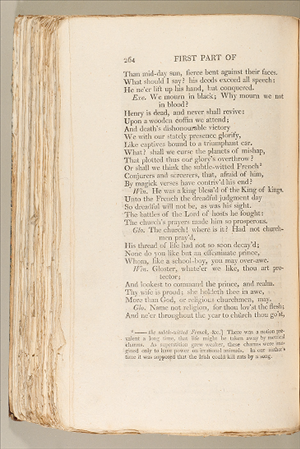 264 FIRST PART OF
Than mid-day sun, fierce bent against their faces.
What should I say? his deeds exceed all speech:
He ne'er lift up his hand, but conquered.
Exe. We mourn in black; Why mourn we not
in blood?
Henry is dead, and never shall revive:
Upon a wooden coffin we attend;
And death's dishonourable victory
We with our stately presence glorify,
Like captives bound to a triumphant car.
What? shall we curse the planets of mishap,
That plotted thus our glory's overthrow?
Or shall we think the subtle-witted French*
Conjurers and sorcerers, that, afraid of him,
By magick verses have contriv'd his end?
Win. He was a king bless'd of the King of kings.
Unto the French the dreadful judgment day
So dreadful will not be, as was his sight.
The battles of the Lord of hosts he fought:
The church's prayers made him so prosperous.
Glo. The church! where is it? Had not church-
men pray'd,
His thread of life had not so soon decay'd:
None do you like but an effeminate prince,
Whom, like a school-boy, you may over-awe.
Win. Gloster, whate'er we like, thou art pro-
tector;
And lookest to command the prince, and realm.
Thy wife is proud; she holdeth thee in awe,
More than God, or religious churchmen, may.
Glo. Name not religion, for thou lov'st the flesh;
And ne'er throughout the year to church thou go'st,
* —— the subtle-witted French, &c.] There was a notion pre-
valent a long time, that life might be taken away by metrical
charms. As superstition grew weaker, these charms were ima-
gined only to have power on irrational animals. In our author's
time it was supposed that the Irish could kill rats by a song.